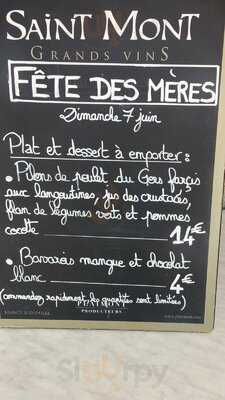 SAINT MONT
GRANDS VINS
FÊTE DES MÈRES
Dimanche 7 juin
Plat et dessert à emporter :
• Pilons de poulet du Gers farçis
aux langoustines, jus des crustacés,
flan de légumes verts et pommes
cocotte 14€
• Bavarois mangue et chocolat
blanc 4€
(commandez rapidement les quantités sont limitées)
PLAIMONT
PRODUCTEURS
Sluurpy